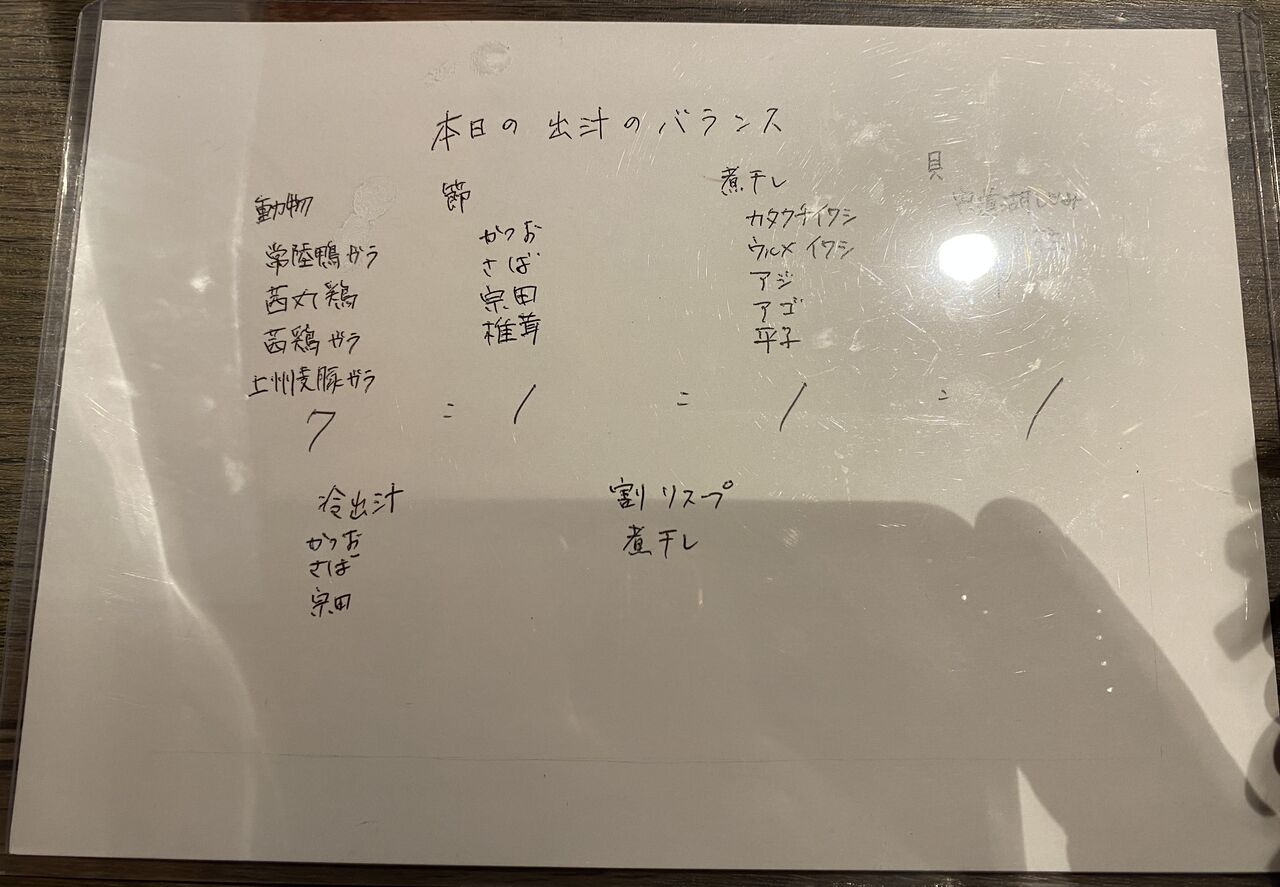 本日の出汁のバランス
動物
常陸鴨ガラ
茜丸鶏
茜鶏ガラ
上州麦豚ガラ
節
かつお
さば
宗田
椎茸
煮干し
カタクチイワシ
ウルメイワシ
アジ
アゴ
平子
貝
しじみ
7 : 1 : 1 : 1
冷出汁
かつお
さば
宗田
割リスープ
煮干し